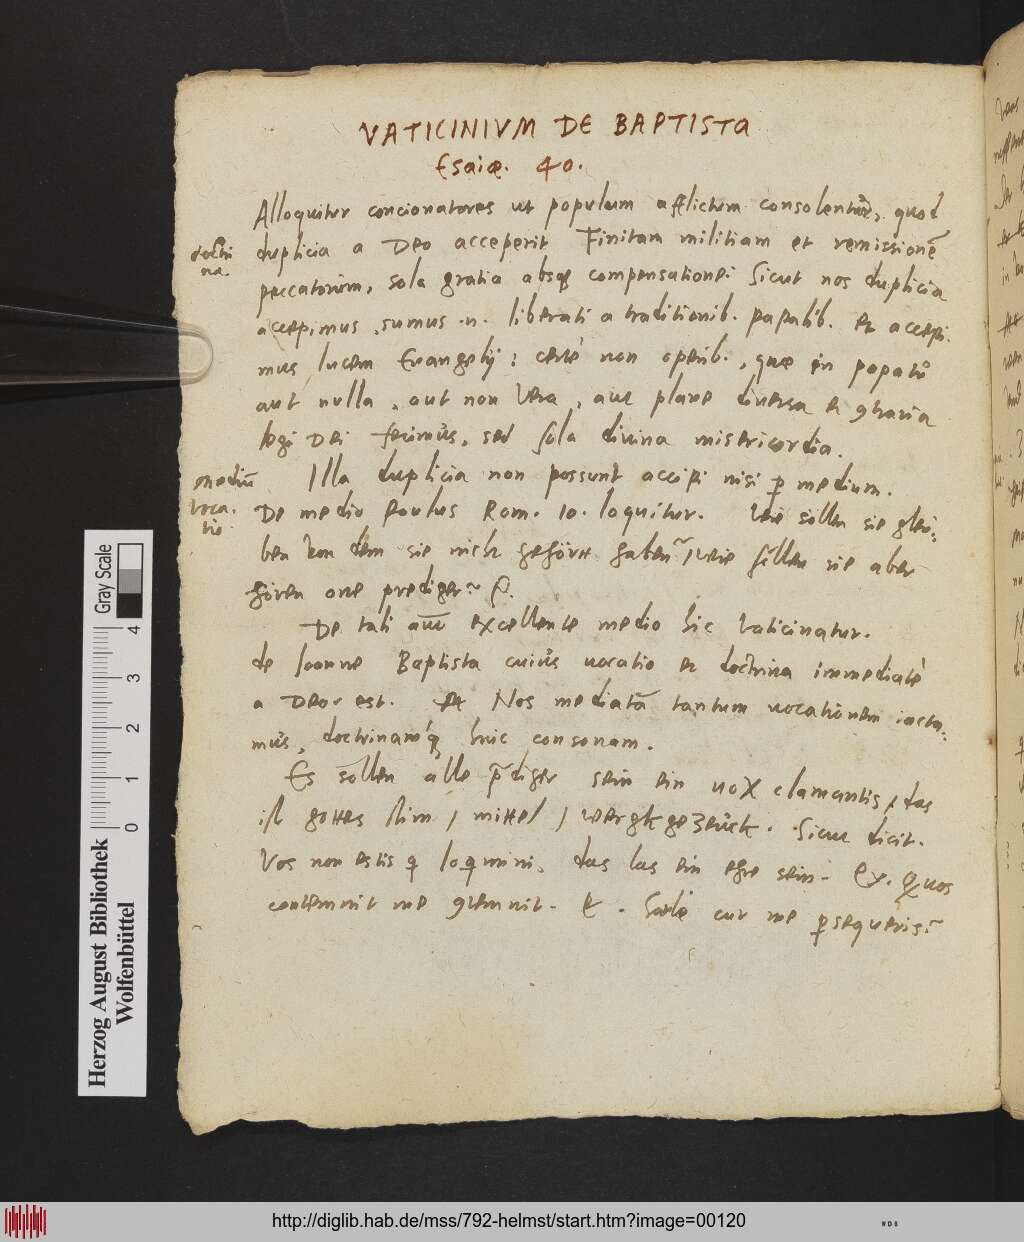 VATICINIVM DE BAPTISTA
Esaiæ. 40.
Alloquitur concionatores ut populum afflictum consolentur, quod
doctri
na
duplicia a Deo acceperit Finitam militiam et remissionē
peccatorum, sola gratia absq; compensatione: Sicut nos duplicia
accepimus, sumus .n. liberati a traditionib. papalib. et accepi-
mus lucem Evangelij: certè non operib., quæ in papatu
aut nulla, aut non vera, aut plane diversa et ꝯtraria
legi Dei fecimus, sed sola divina misericordia.
mediū
voca.
tio.
Illa duplicia non possunt accipi nisi ꝑ medium.
De medio Paulus Rom. 10. loquitur. Wie sollen sie gleu=
ben von dem sie nich gehört haben? Wie sollen sie aber
hören one prediger?
De tali aūt excellente medio hic vaticinatur.
de Joanne Baptista cuius vocatio et doctrina immediatè
a Deo est. Nos mediatā tantum vocationem iacta=
mus, doctrinamq́ huic consonam.
Es sollen alle p̄diger sein ein vox clamantis, das
ist gottes stim, mittel, wergkgezeück. Sicut dicit.
Vos non estis q loqmini. das las ein ehre sein. Ex. Qui vos
contemnit me ꝯtemnit. Et. Saule cur me ꝑsequeris?
Herzog August Bibliothek
Wolfenbüttel
Gray Scale
0 1 2 3 4
http://diglib.hab.de/mss/792-helmst/start.htm?image=00120